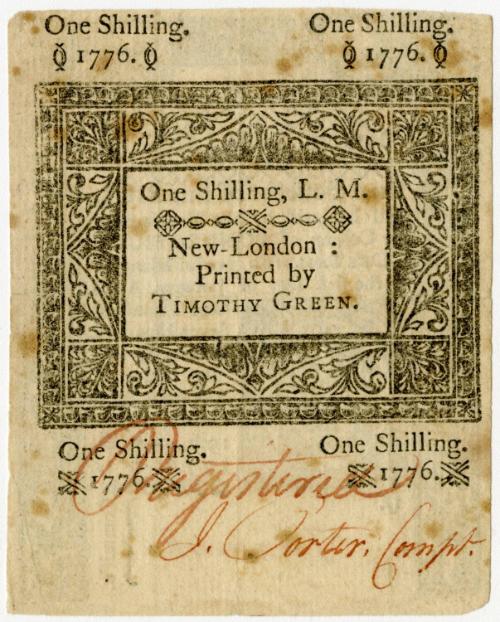 One Shilling. One Shilling.
1776. 1776.
One Shilling, L. M.
New-London :
Printed by
TIMOTHY GREEN.
One Shilling. One Shilling.
1776. 1776.
Registered
J. Porter, Compt.